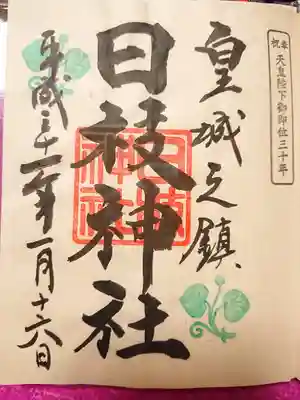 奉祝 天皇陛下御即位三十年
皇城之鎮
日枝神社
日枝神社
平成三十一年一月十六日